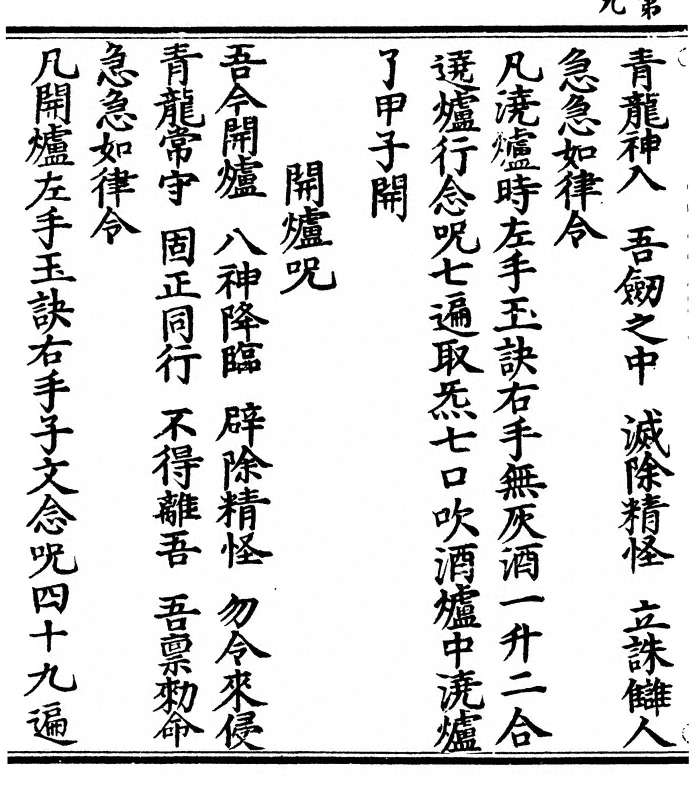 青龍神入　吾劒之中　滅除精怪　立誅讎人
急急如律令
凡澆爐時左手玉訣右手無灰酒一升二合
遶爐行念呪七遍取炁七口吹酒爐中澆爐
了甲子開
開爐呪
吾今開爐　八神降臨　辟除精怪　勿令來侵
青龍常守　固正同行　不得離吾　吾禀勑命
急急如律令
凡開爐左手玉訣右手子文念呪四十九遍